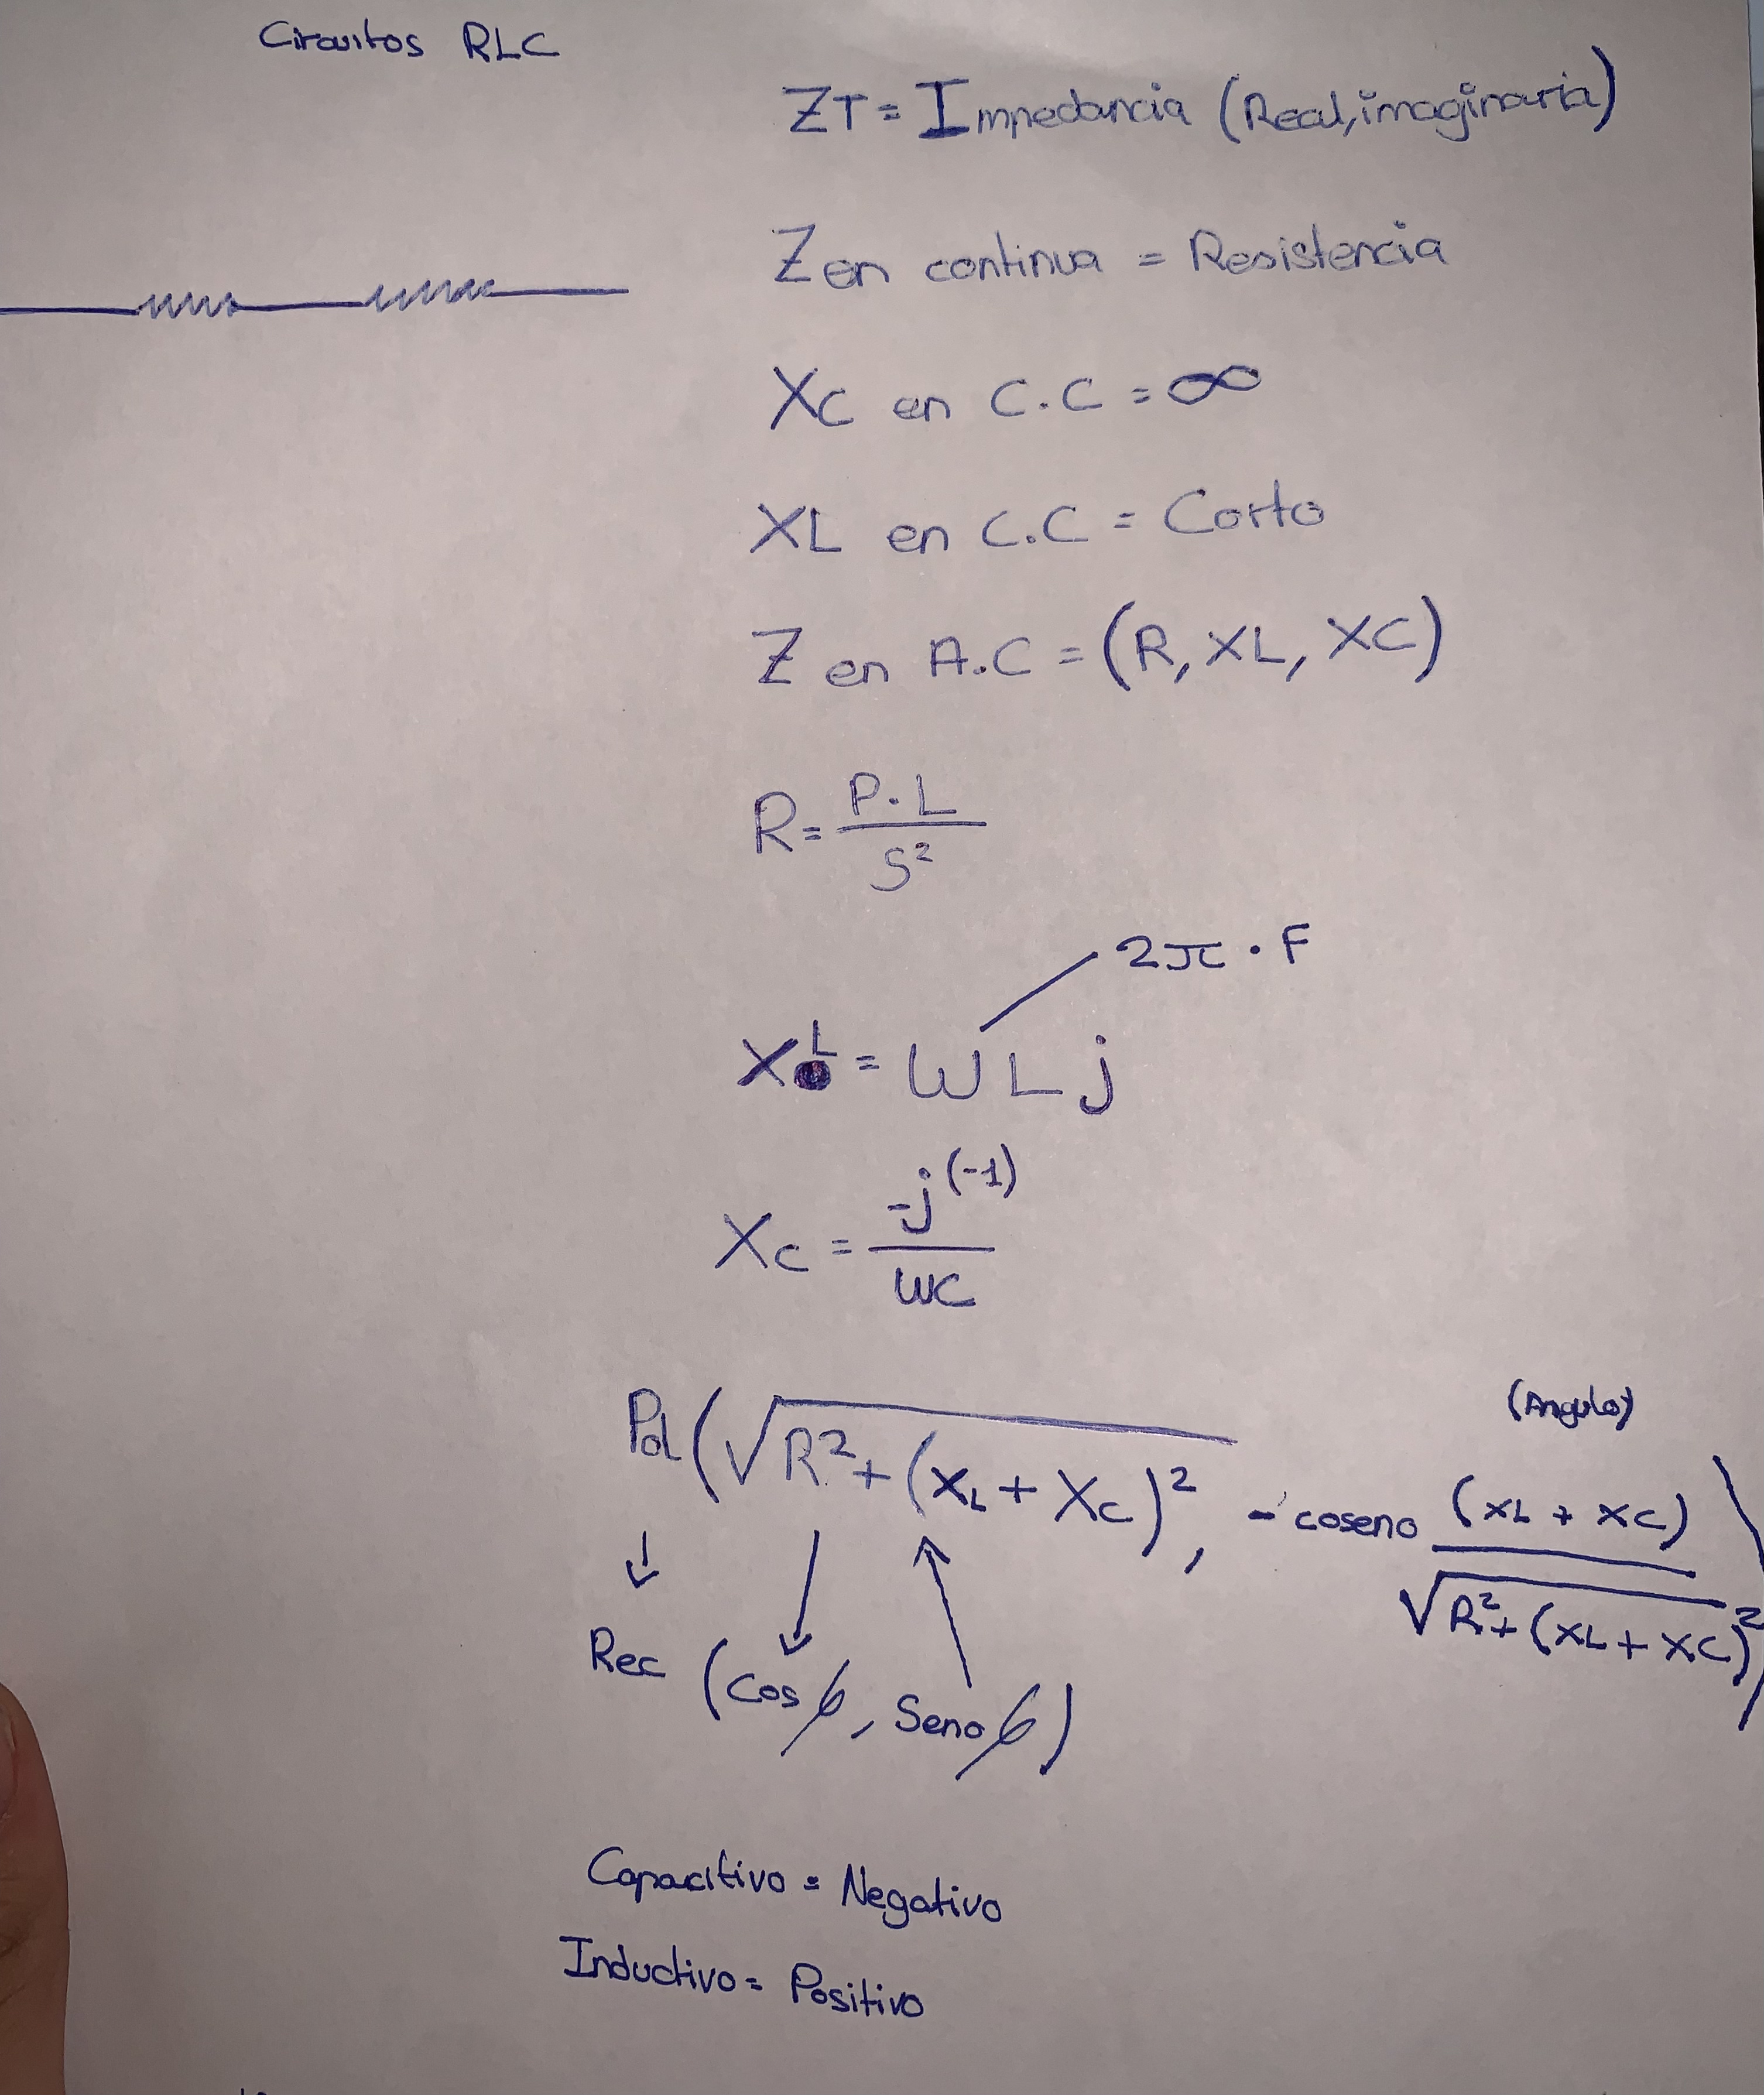 Circuitos RLC
ZT = Impedancia (Real, imaginaria)
Z en continua = Resistencia
XC en C.C = ∞
XL en C.C = Corto
Z en A.C = (R, XL, XC)
R = P·L / S²
2π · F
XL = WLj
XC = -j⁽⁻¹⁾ / WC
(Angulo)
Pol (√R² + (XL + XC)², - coseno (XL + XC) / √R² + (XL + XC)²)
↓
Rec (Cos ϕ, Seno ϕ)
Capacitivo = Negativo
Inductivo = Positivo